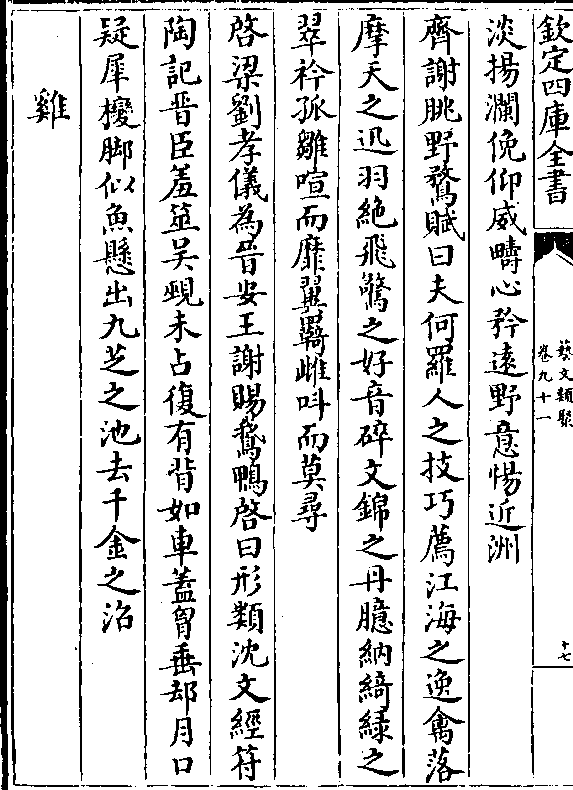 欽定四庫全書
藝文類聚
卷九十一
十七
淡揚瀾俛仰威疇心矜遠野意惕近洲
齊謝朓野鶩賦曰夫何羅人之技巧薦江海之逸禽落
摩天之迅羽絶飛鶩之好音碎文錦之丹臆納綺綠之
翠衿孤雛喧而靡翼羇雌叫而莫尋
啓梁劉孝儀為晉安王謝賜鵞鴨啓曰形類沈文經符
陶記晋臣羞茁吴觋未占復有背如車蓋胷垂却月口
疑犀欔脚似魚懸出九芝之池去千金之沼
雞